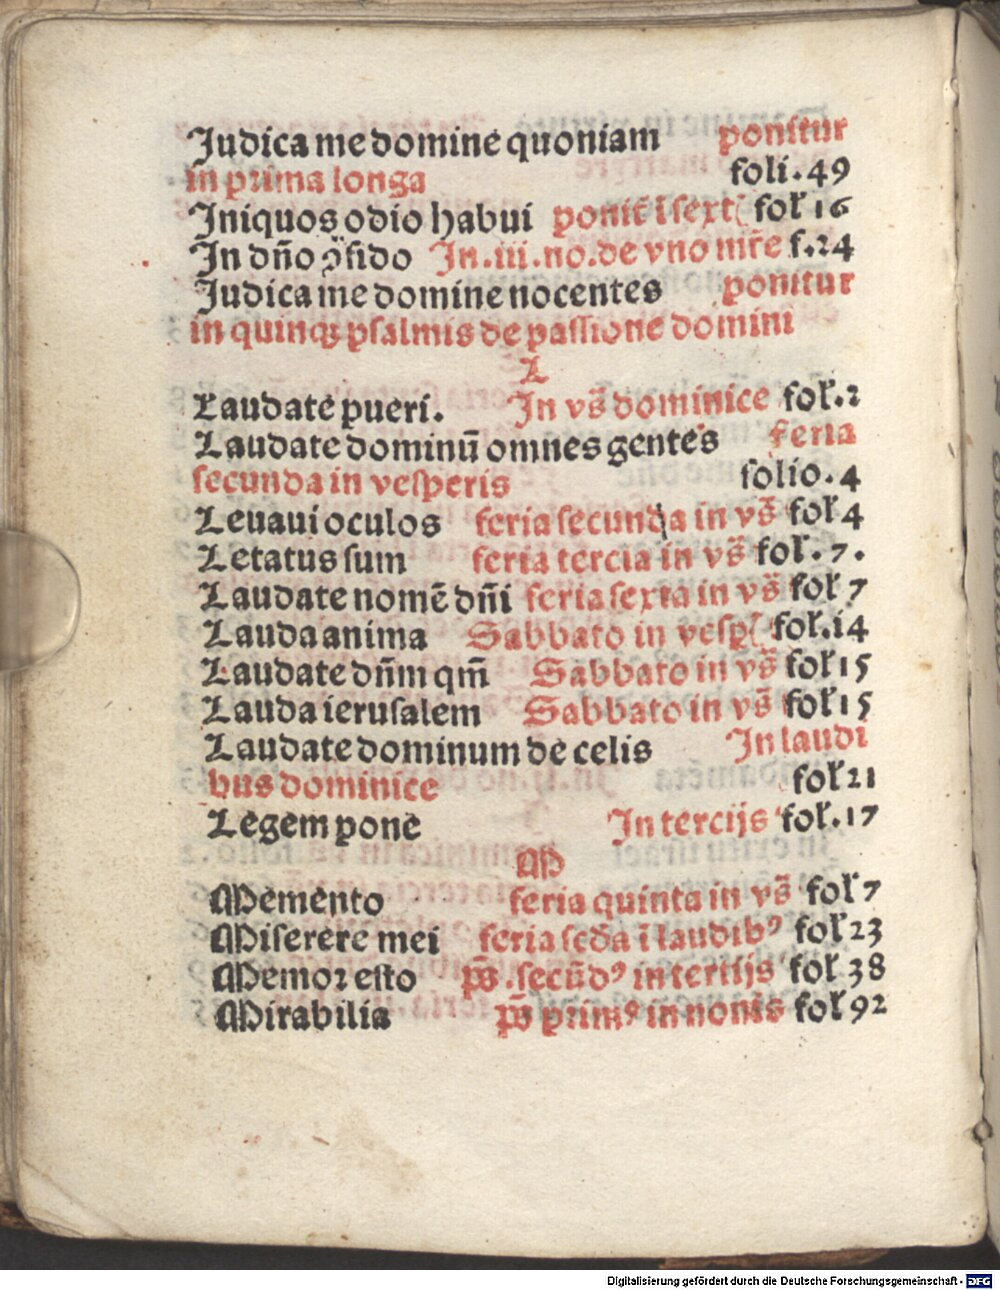 Iudica me domine quoniam ponitur
in prima longa foli. 49
Iniquos odio habui ponit̃ ĩ sext fol 16
In dño ↄ̃fido In .iii. no. de vno mr̃e f. 24
Iudica me domine nocentes ponitur
in quinqꝫ psalmis de passione domini
L
Laudate pueri. In vs̃ dominice fol. 2
Laudate dominũ omnes gentes feria
secunda in vesperis folio. 4
Leuaui oculos feria secunda in vs̃ fol 4
Letatus sum feria tercia in vs̃ fol. 7.
Laudate nomẽ dñi feria sexta in vs̃ fol 7
Lauda anima Sabbato in vesp fol. 14
Laudate dñm qm̃ Sabbato in vs̃ fol 15
Lauda ierusalem Sabbato in vs̃ fol 15
Laudate dominum de celis In laudi
bus dominice fol 21
Legem pone In tercijs fol. 17
M
Memento feria quinta in vs̃ fol 7
Miserere mei feria scd̃a ĩ laudibꝰ fol 23
Memor esto ps̃ .secũdꝰ in tertijs fol 38
Mirabilia ps̃ primꝰ in nonis fol 92
Digitalisierung gefördert durch die Deutsche Forschungsgemeinschaft - DFG